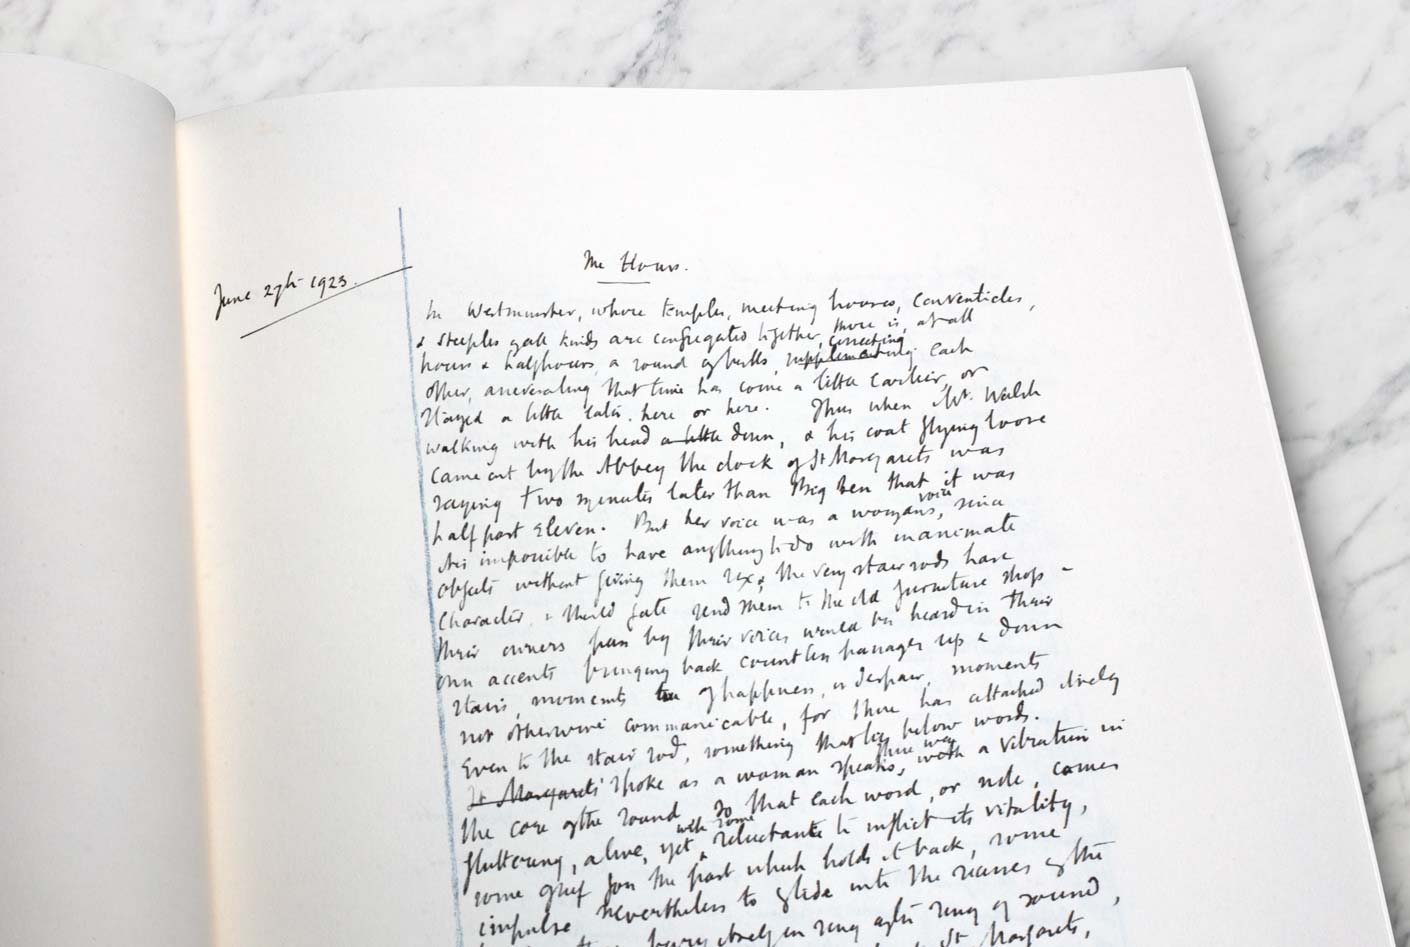 June 27th 1923.
The Hours.
In Westminster, where temples, meeting houses, conventicles,
& steeples of all kinds are congregated together, there is, at all
hours & halfhours, a round of bells, correcting
supplementing each
other, asseverating that time has come a little earlier, or
stayed a little later, here or here. Thus when Mr. Walsh
walking with his head a little down, & his coat flying loose
came out by the Abbey the clock of St Margarets was
saying two minutes later than Big Ben that it was
half past Eleven. But her voice was a woman's, voice
since
it is impossible to have anything to do with inanimate
objects without giving them sex; the very stair rods have
character, & should fate send them to the old furniture shop -
their owners pass by their voices would be heard in their
own accents bringing back countless passages up & down
stairs, moments of happiness, or despair, moments
not otherwise communicable, for there has attached itself
even to the stair rod, something that lies below words.
St Margarets' spoke as a woman speaks, there was
with a vibration in
the core of the sound so that each word, or note, comes
fluttering, alive, yet, with some
reluctance to inflict its vitality,
some grief for the past which holds it back, some
impulse nevertheless to glide into the recesses of the
ring after ring of sound,
St. Margarets,